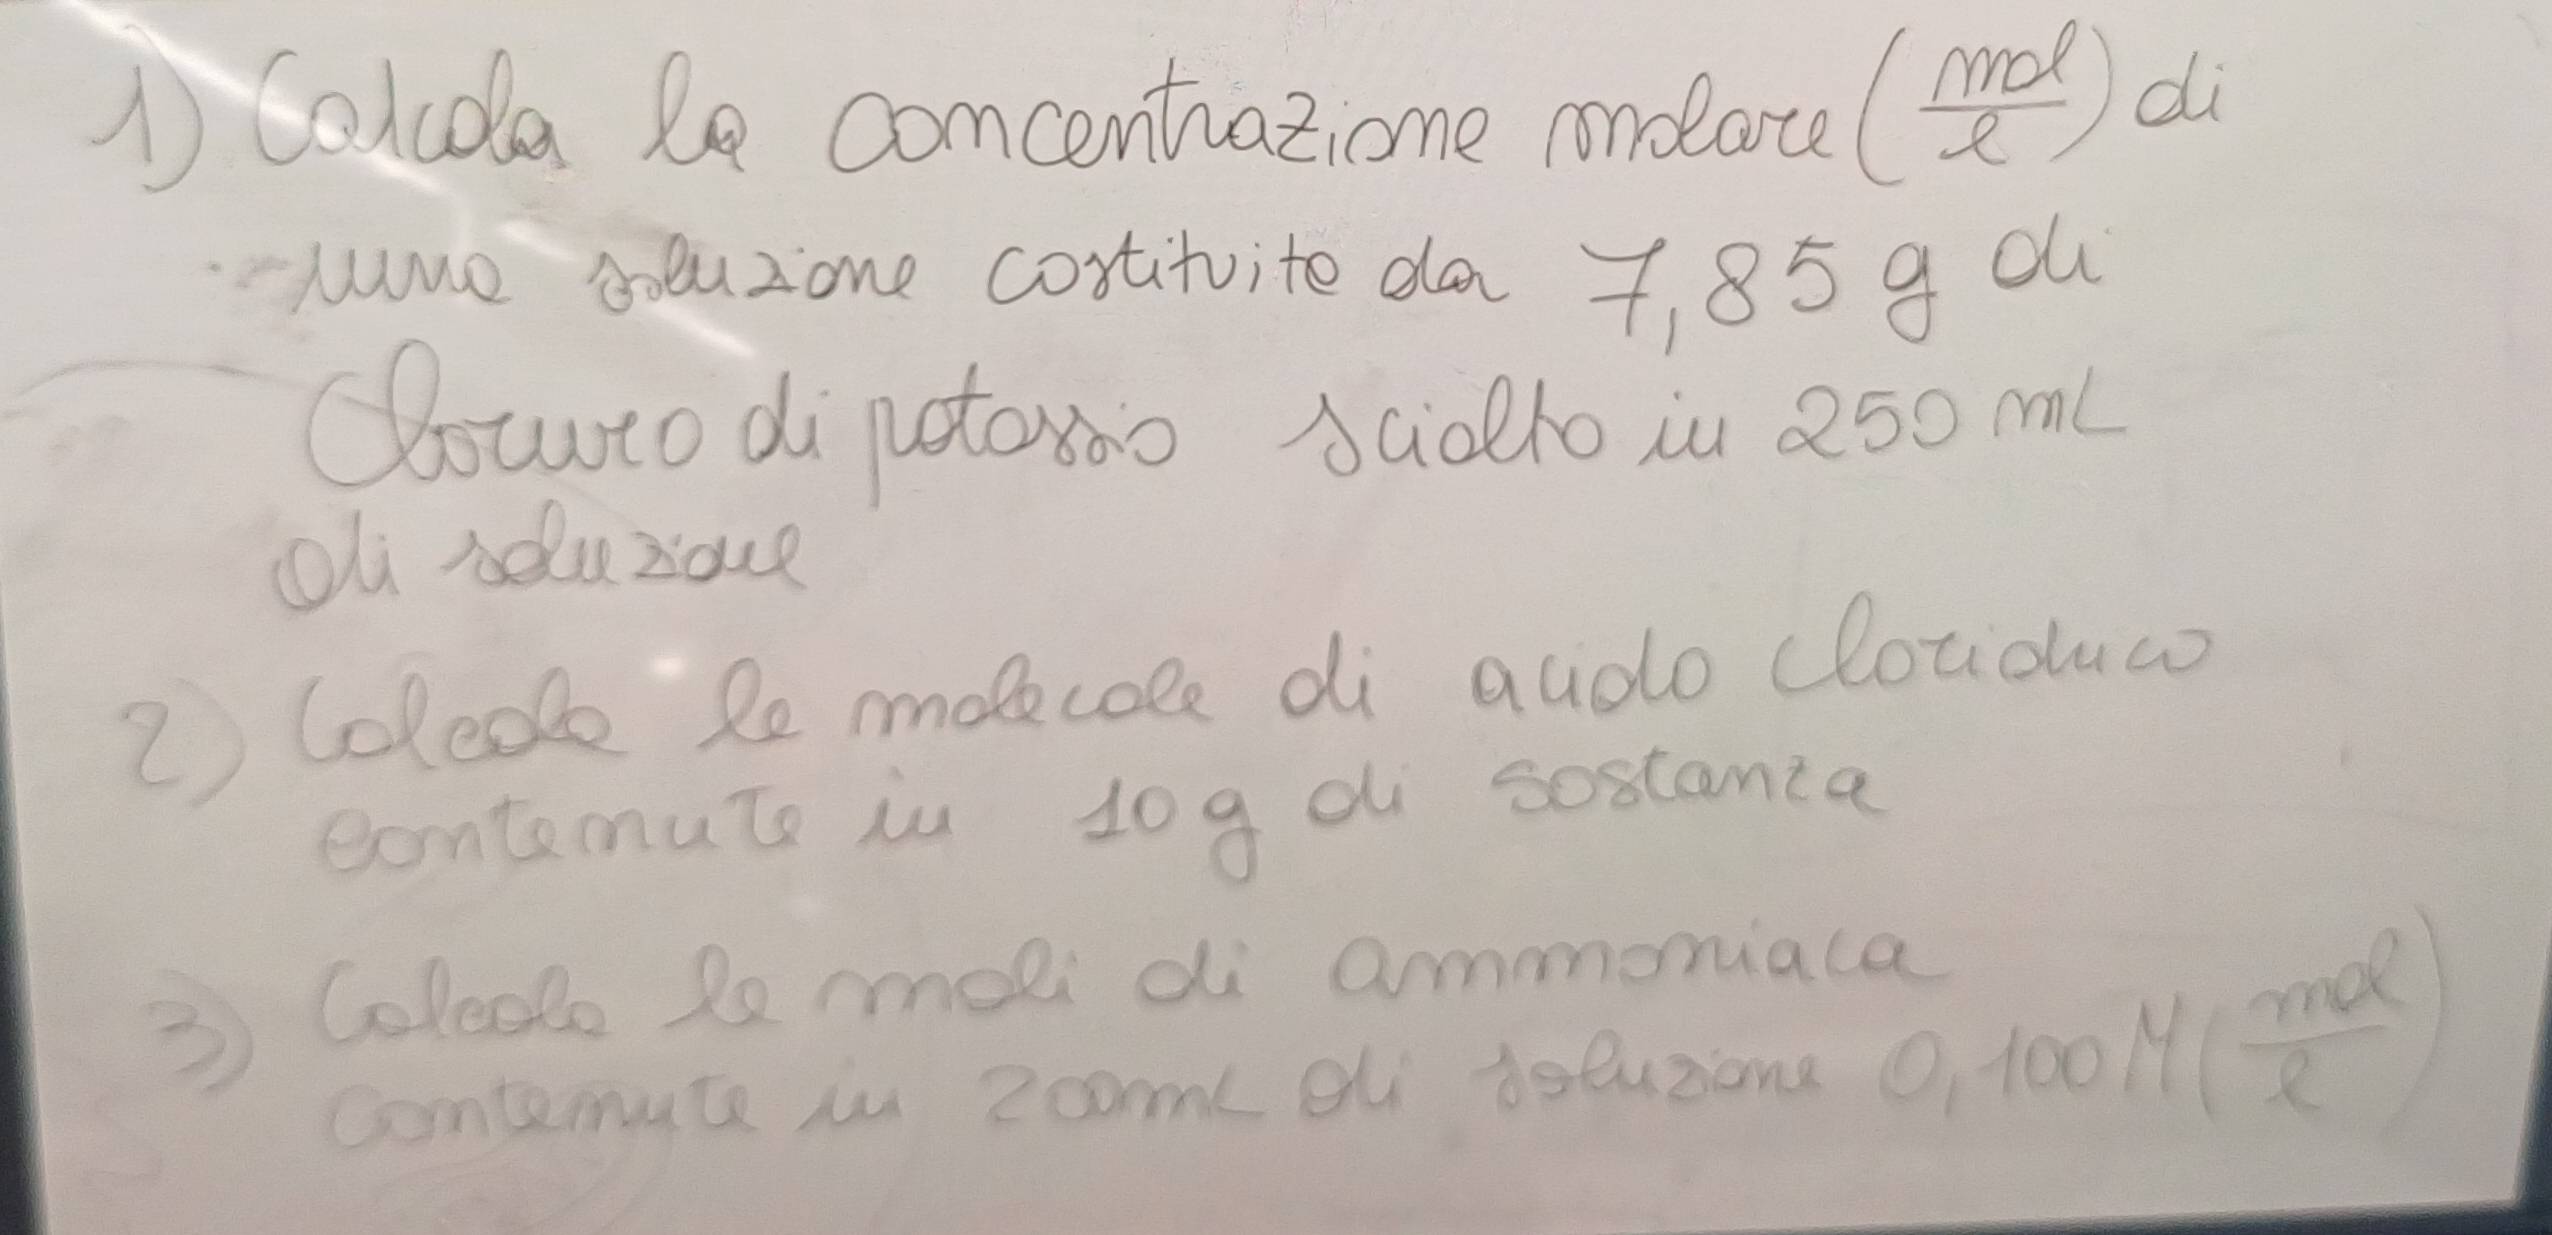 1) Calcola la concentrazione molare (mol/l) di
una soluzione costituita da 7,85 g di
Cloruro di potassio sciolto in 250 mL
di soluzione
2) Calcola le molecole di acido cloridrico
contenute in 10 g di sostanza
3) Calcola le moli di ammoniaca
contenute in 200mL di soluzione 0,100 M (mol/l)